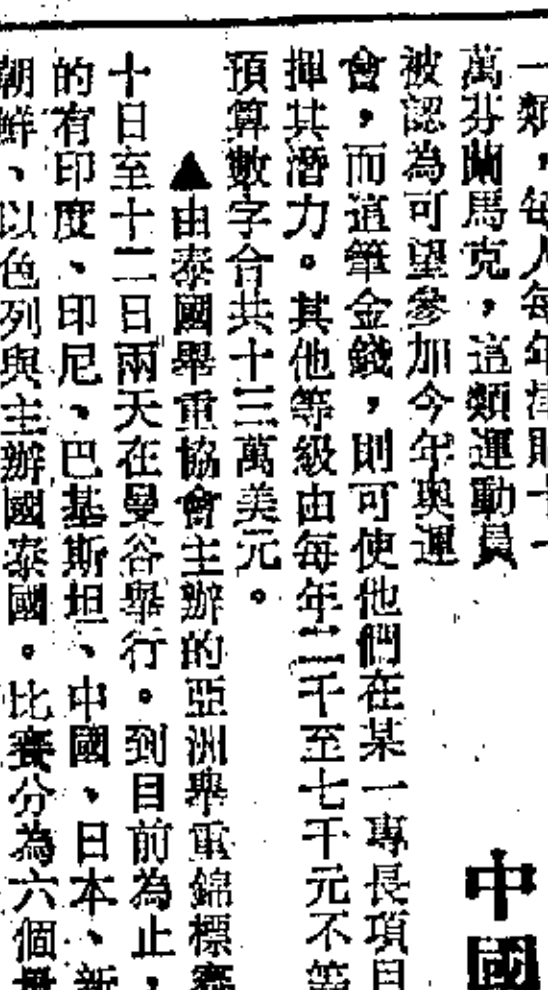 一類，每人每年津貼十一
萬芬蘭馬克，這類運動員
被認為可望參加今年奧運
會，而這筆金錢，則可使他們在某一專長項目
揮其潛力。其他等級由每年二千至七千元不等
預算數字合共十三萬美元。
▲由泰國舉重協會主辦的亞洲舉重錦標賽
十日至十二日兩天在曼谷舉行。到目前為止，
的有印度、印尼、巴基斯坦、中國、日本、新
朝鮮、以色列與主辦國泰國。比賽分為六個量
中國